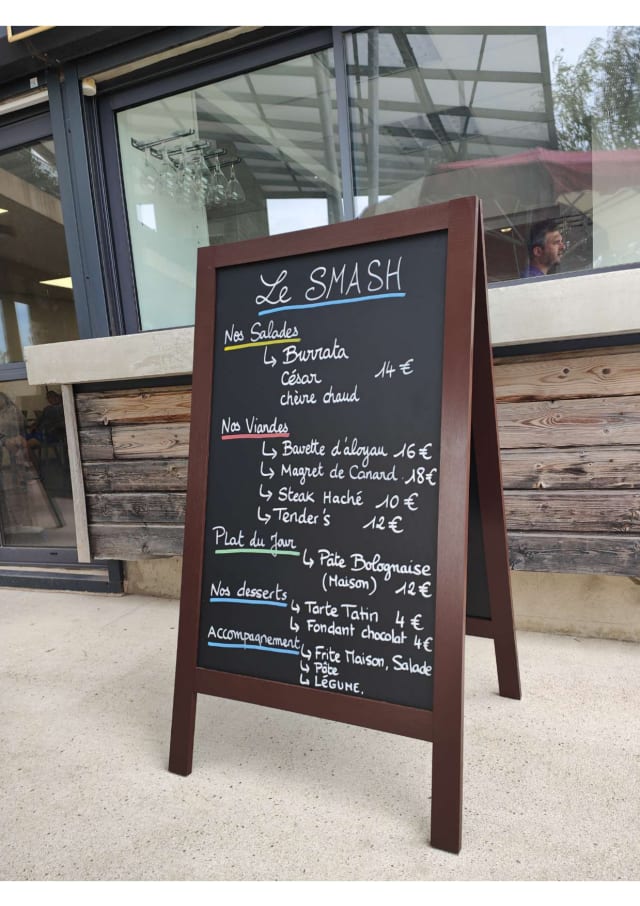 Le SMASH
Nos Salades
↳ Burrata
César 14€
chèvre chaud
Nos Viandes
↳ Bavette d'aloyau 16€
↳ Magret de Canard . 18€
↳ Steak Haché 10€
↳ Tender's 12€
Plat du Jour
↳ Pâte Bolognaise
(Maison) 12€
Nos desserts
↳ Tarte Tatin 4€
↳ Fondant chocolat 4€
Accompagnement
↳ Frite Maison, Salade
↳ Pâte
↳ LÉGUME.